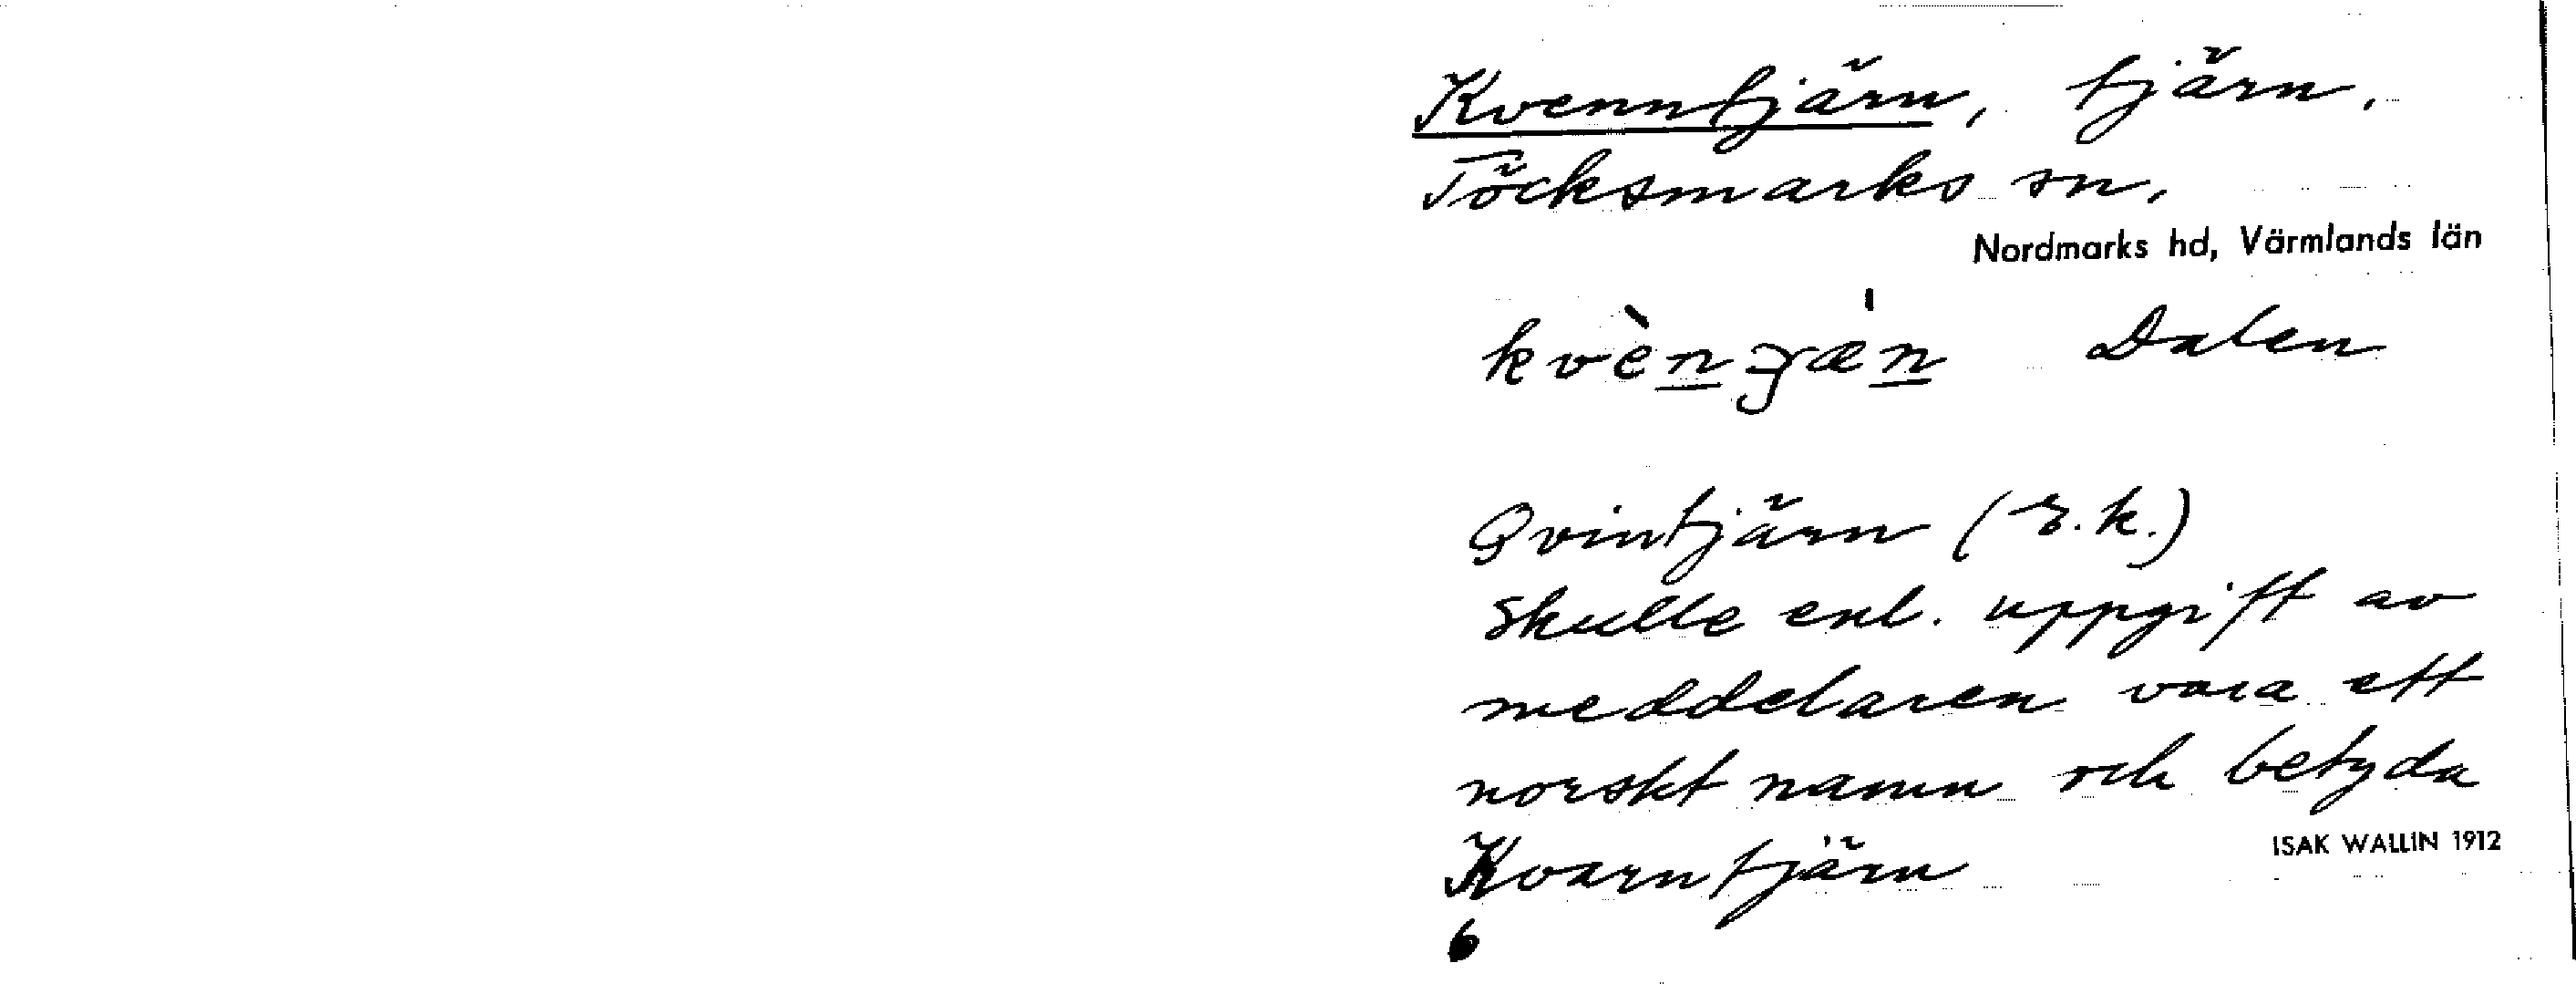 Kvenntjärn, tjärn,
Töcksmarks sn,
Nordmarks hd, Värmlands län
Dalen
Qvintjärn (r.k.)
Skulle enl. uppgift av
meddelaren vara ett
norskt namn och betyda
Kvarntjärn
ISAK WALLIN 1912
6